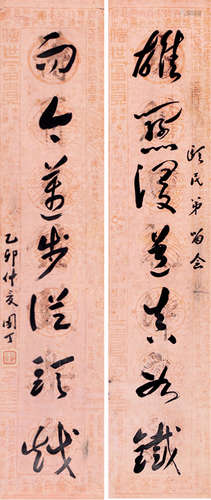 民弟留念
雄關漫道真如鐵
而今邁步從頭越
乙卯仲夏園丁